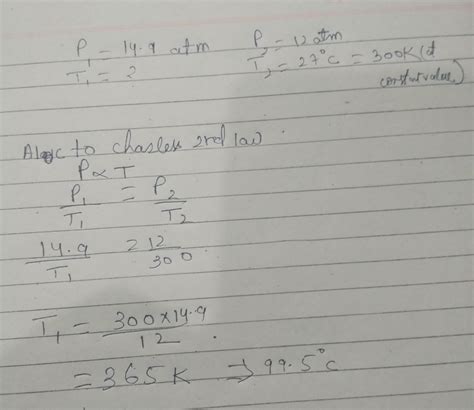 P₁ = 14.9 atm P₂ = 12 atm
T₁ = ? T₂ = 27°C = 300K (at
constant value)
to
law
P ∝ T
P₁/T₁ = P₂/T₂
14.9/T₁ = 12/300
T₁ = 300×14.9/12
= 365K → 99.5°C